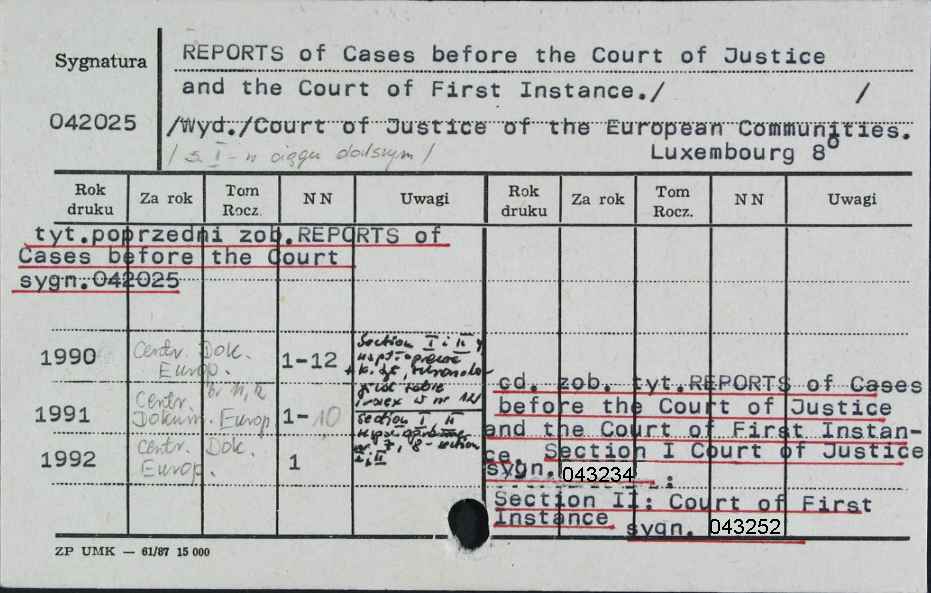 Sygnatura
REPORTS of Cases before the Court of Justice
and the Court of First Instance./ /
042025
/Wyd./Court of Justice of the European Communities.
/ s. I-w ciągu dalszym /
Luxembourg 8°
Rok druku Za rok Tom Rocz. NN Uwagi Rok druku Za rok Tom Rocz. NN Uwagi
tyt.poprzedni zob.REPORTS of
Cases before the Court
sygn.042025
1990 Centr. Dok. Europ. 1-12 Section I i II
w nr 12
1991 Centr. Dokum. Europ. br 11, 12 1-10 Section I II
1992 Centr. Dok. Europ. 1 7, 8 - section I, II
cd. zob. tyt.REPORTS of Cases
before the Court of Justice
and the Court of First Instan-
ce. Section I Court of Justice
sygn. 043234 :
Section II: Court of First
Instance
sygn. 043252
ZP UMK — 61/87 15 000